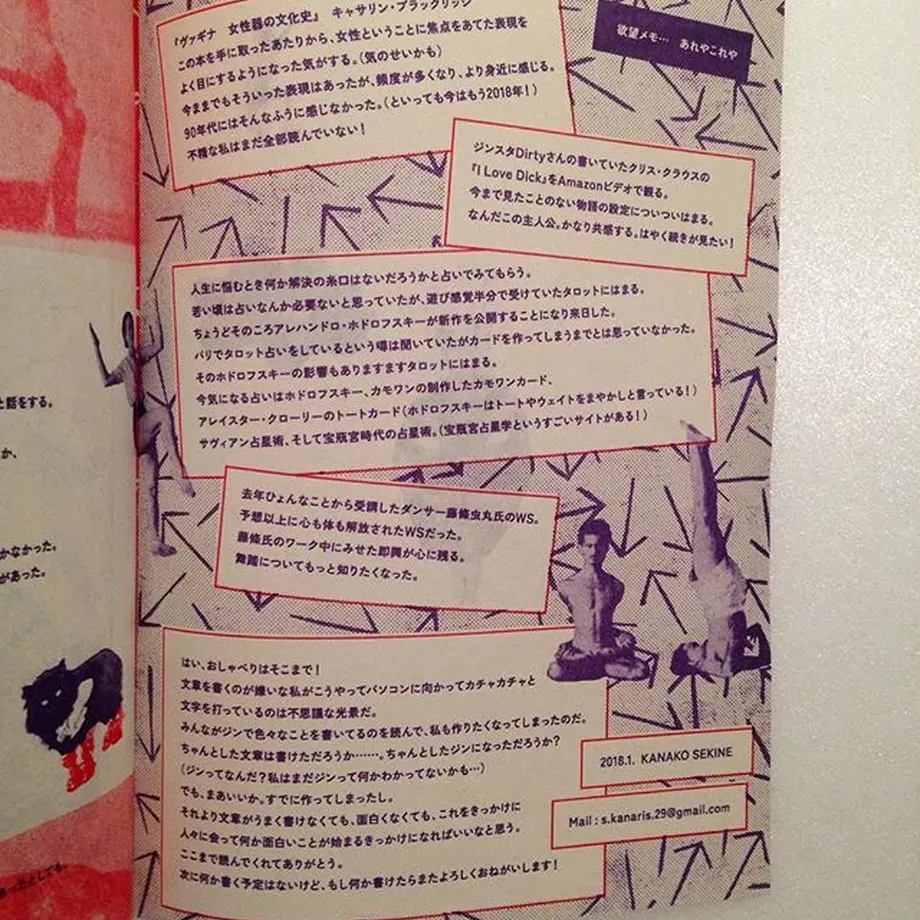 『ヴァギナ 女性器の文化史』 キャサリン・ブラックリッジ
この本を手に取ったあたりから、女性ということに焦点をあてた表現を
よく目にするようになった気がする。(気のせいかも)
今までもそういった表現はあったが、頻度が多くなり、より身近に感じる。
90年代にはそんなふうに感じなかった。(といっても今はもう2018年!)
不精な私はまだ全部読んでいない!
欲望メモ… あれやこれや
ジンスタDirtyさんの書いていたクリス・クラウスの
『I Love Dick』をAmazonビデオで観る。
今まで見たことのない物語の設定についついはまる。
なんだこの主人公。かなり共感する。はやく続きが見たい!
人生に悩むとき何か解決の糸口はないだろうかと占いでみてもらう。
若い頃は占いなんか必要ないと思っていたが、遊び感覚半分で受けていたタロットにはまる。
ちょうどそのころアレハンドロ・ホドロフスキーが新作を公開することになり来日した。
パリでタロット占いをしているという噂は聞いていたがカードを作ってしまうまでとは思っていなかった。
そのホドロフスキーの影響もありますますタロットにはまる。
今気になる占いはホドロフスキー、カモワンの制作したカモワンカード、
アレイスター・クローリーのトートカード(ホドロフスキーはトートやウェイトをまやかしと言っている!)
サヴィアン占星術、そして宝瓶宮時代の占星術。(宝瓶宮占星学というすごいサイトがある!)
去年ひょんなことから受講したダンサー藤條虫丸氏のWS。
予想以上に心も体も解放されたWSだった。
藤條氏のワーク中にみせた即興が心に残る。
舞踏についてもっと知りたくなった。
はい、おしゃべりはそこまで!
文章を書くのが嫌いな私がこうやってパソコンに向かってカチャカチャと
文字を打っているのは不思議な光景だ。
みんながジンで色々なことを書いてるのを読んで、私も作りたくなってしまったのだ。
ちゃんとした文章は書けただろうか……。ちゃんとしたジンになっただろうか?
(ジンってなんだ?私はまだジンって何かわかってないかも…)
でも、まあいいか。すでに作ってしまったし。
それより文章がうまく書けなくても、面白くなくても、これをきっかけに
人々に会って何か面白いことが始まるきっかけになればいいなと思う。
ここまで読んでくれてありがとう。
次に何か書く予定はないけど、もし何か書けたらまたよろしくおねがいします!
2018.1. KANAKO SEKINE
Mail : s.kanaris.29@gmail.com
と話をする。
か、
かなかった。
があった。